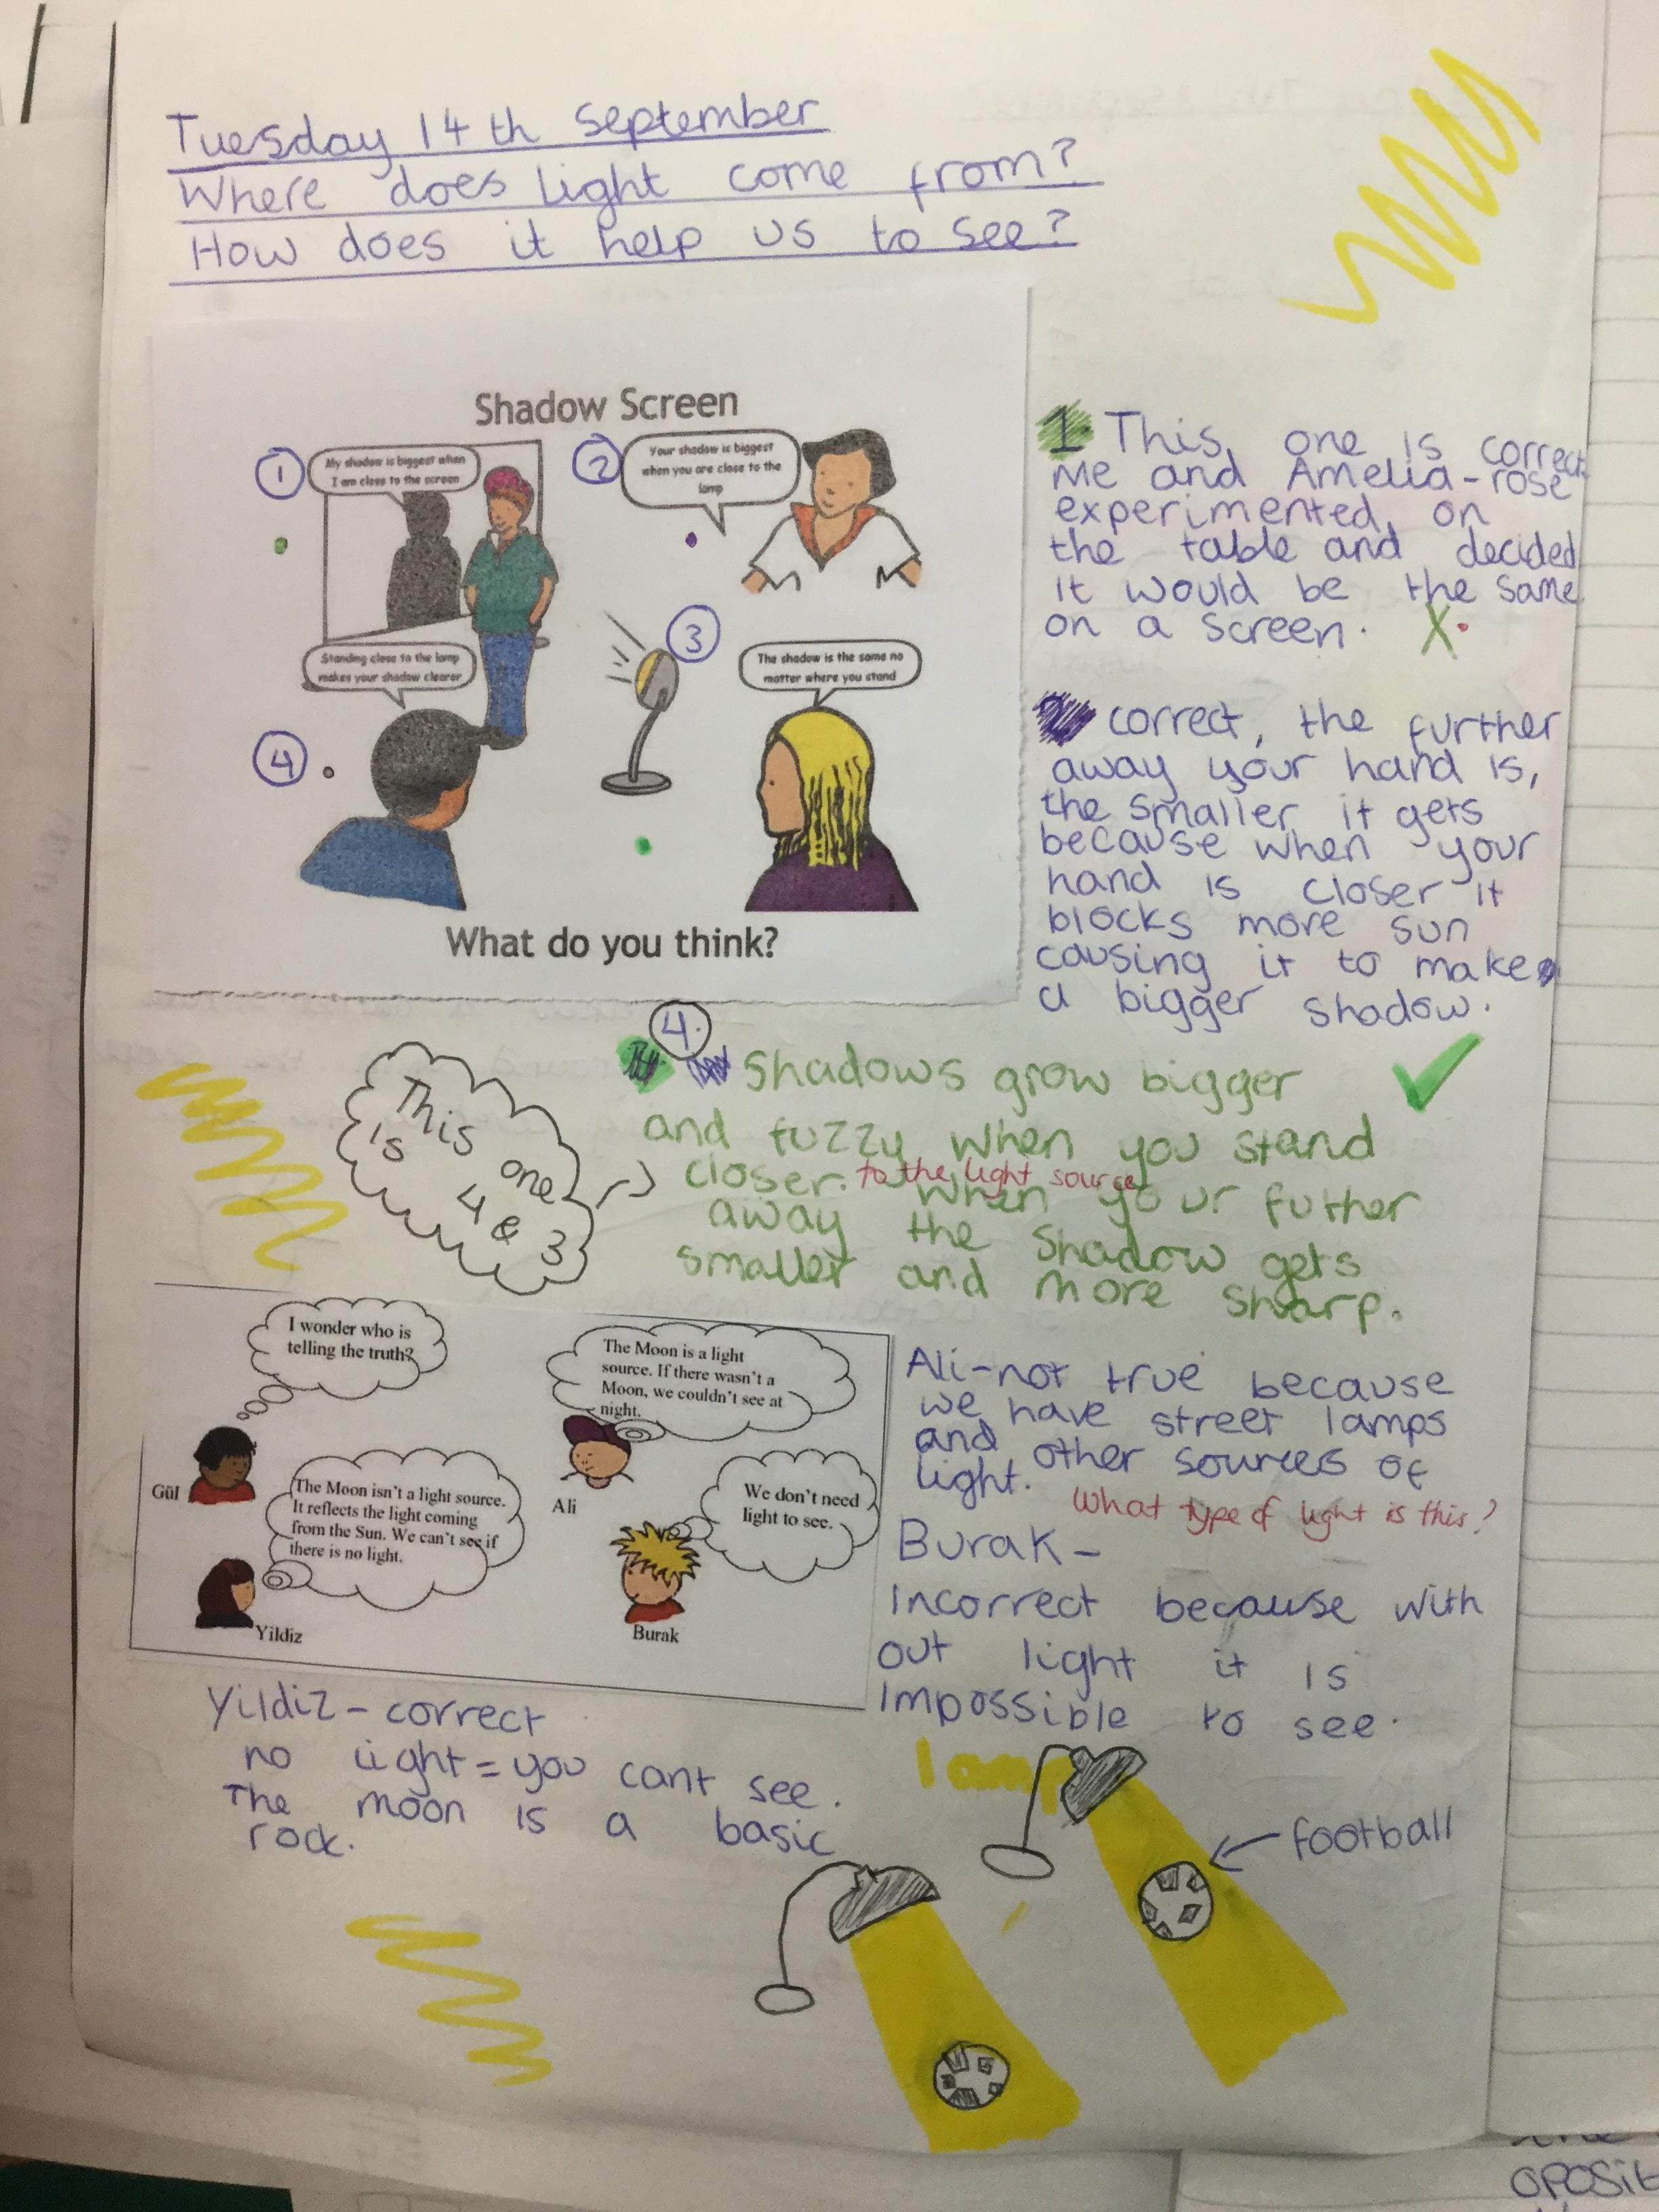 Tuesday 14th September
Where does light come from?
How does it help us to see?
Shadow Screen
1
My shadow is biggest when
I am close to the screen
2
Your shadow is biggest
when you are close to the
lamp
3
Standing close to the lamp
makes your shadow clearer
The shadow is the same no
matter where you stand
4
What do you think?
1. This one is correct
Me and Amelia-rose
experimented, on
the table and decided
it would be the same
on a screen. X
correct, the further
away your hand is,
the smaller it gets
because when your
hand is closer it
blocks more sun
causing it to make
a bigger shadow.
4.
Shadows grow bigger
and fuzzy when you stand
closer. to the light source
When your futher
away the shadow gets
smaller and more sharp.
This one
is 4 & 3
I wonder who is
telling the truth?
Gül
The Moon is a light
source. If there wasn't a
Moon, we couldn't see at
night.
Ali
The Moon isn't a light source.
It reflects the light coming
from the Sun. We can't see if
there is no light.
Yildiz
We don't need
light to see.
Burak
Ali-not true because
we have street lamps
and other sources of
light.
What type of light is this?
Burak-
Incorrect because with
out light it is
Impossible to see.
Yildiz - correct
no light = you cant see.
The moon is a basic
rock.
lamp
football
oposit